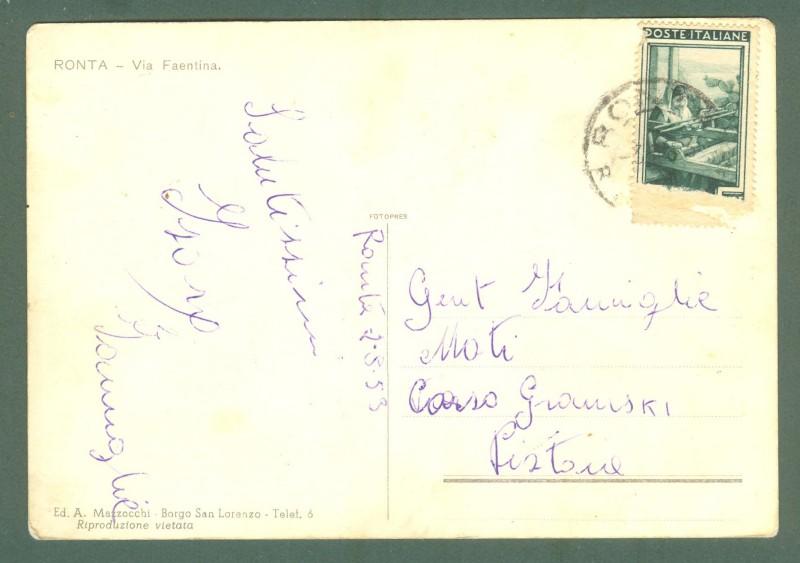 RONTA – Via Faentina.
POSTE ITALIANE
Salutissimi
Famiglie
FOTOPRES
Ronta 2·8·53
Gent Famiglie
Moti
Corso Gramski
Pistoue
Ed. A. Mazzocchi - Borgo San Lorenzo - Telef. 6
Riproduzione vietata